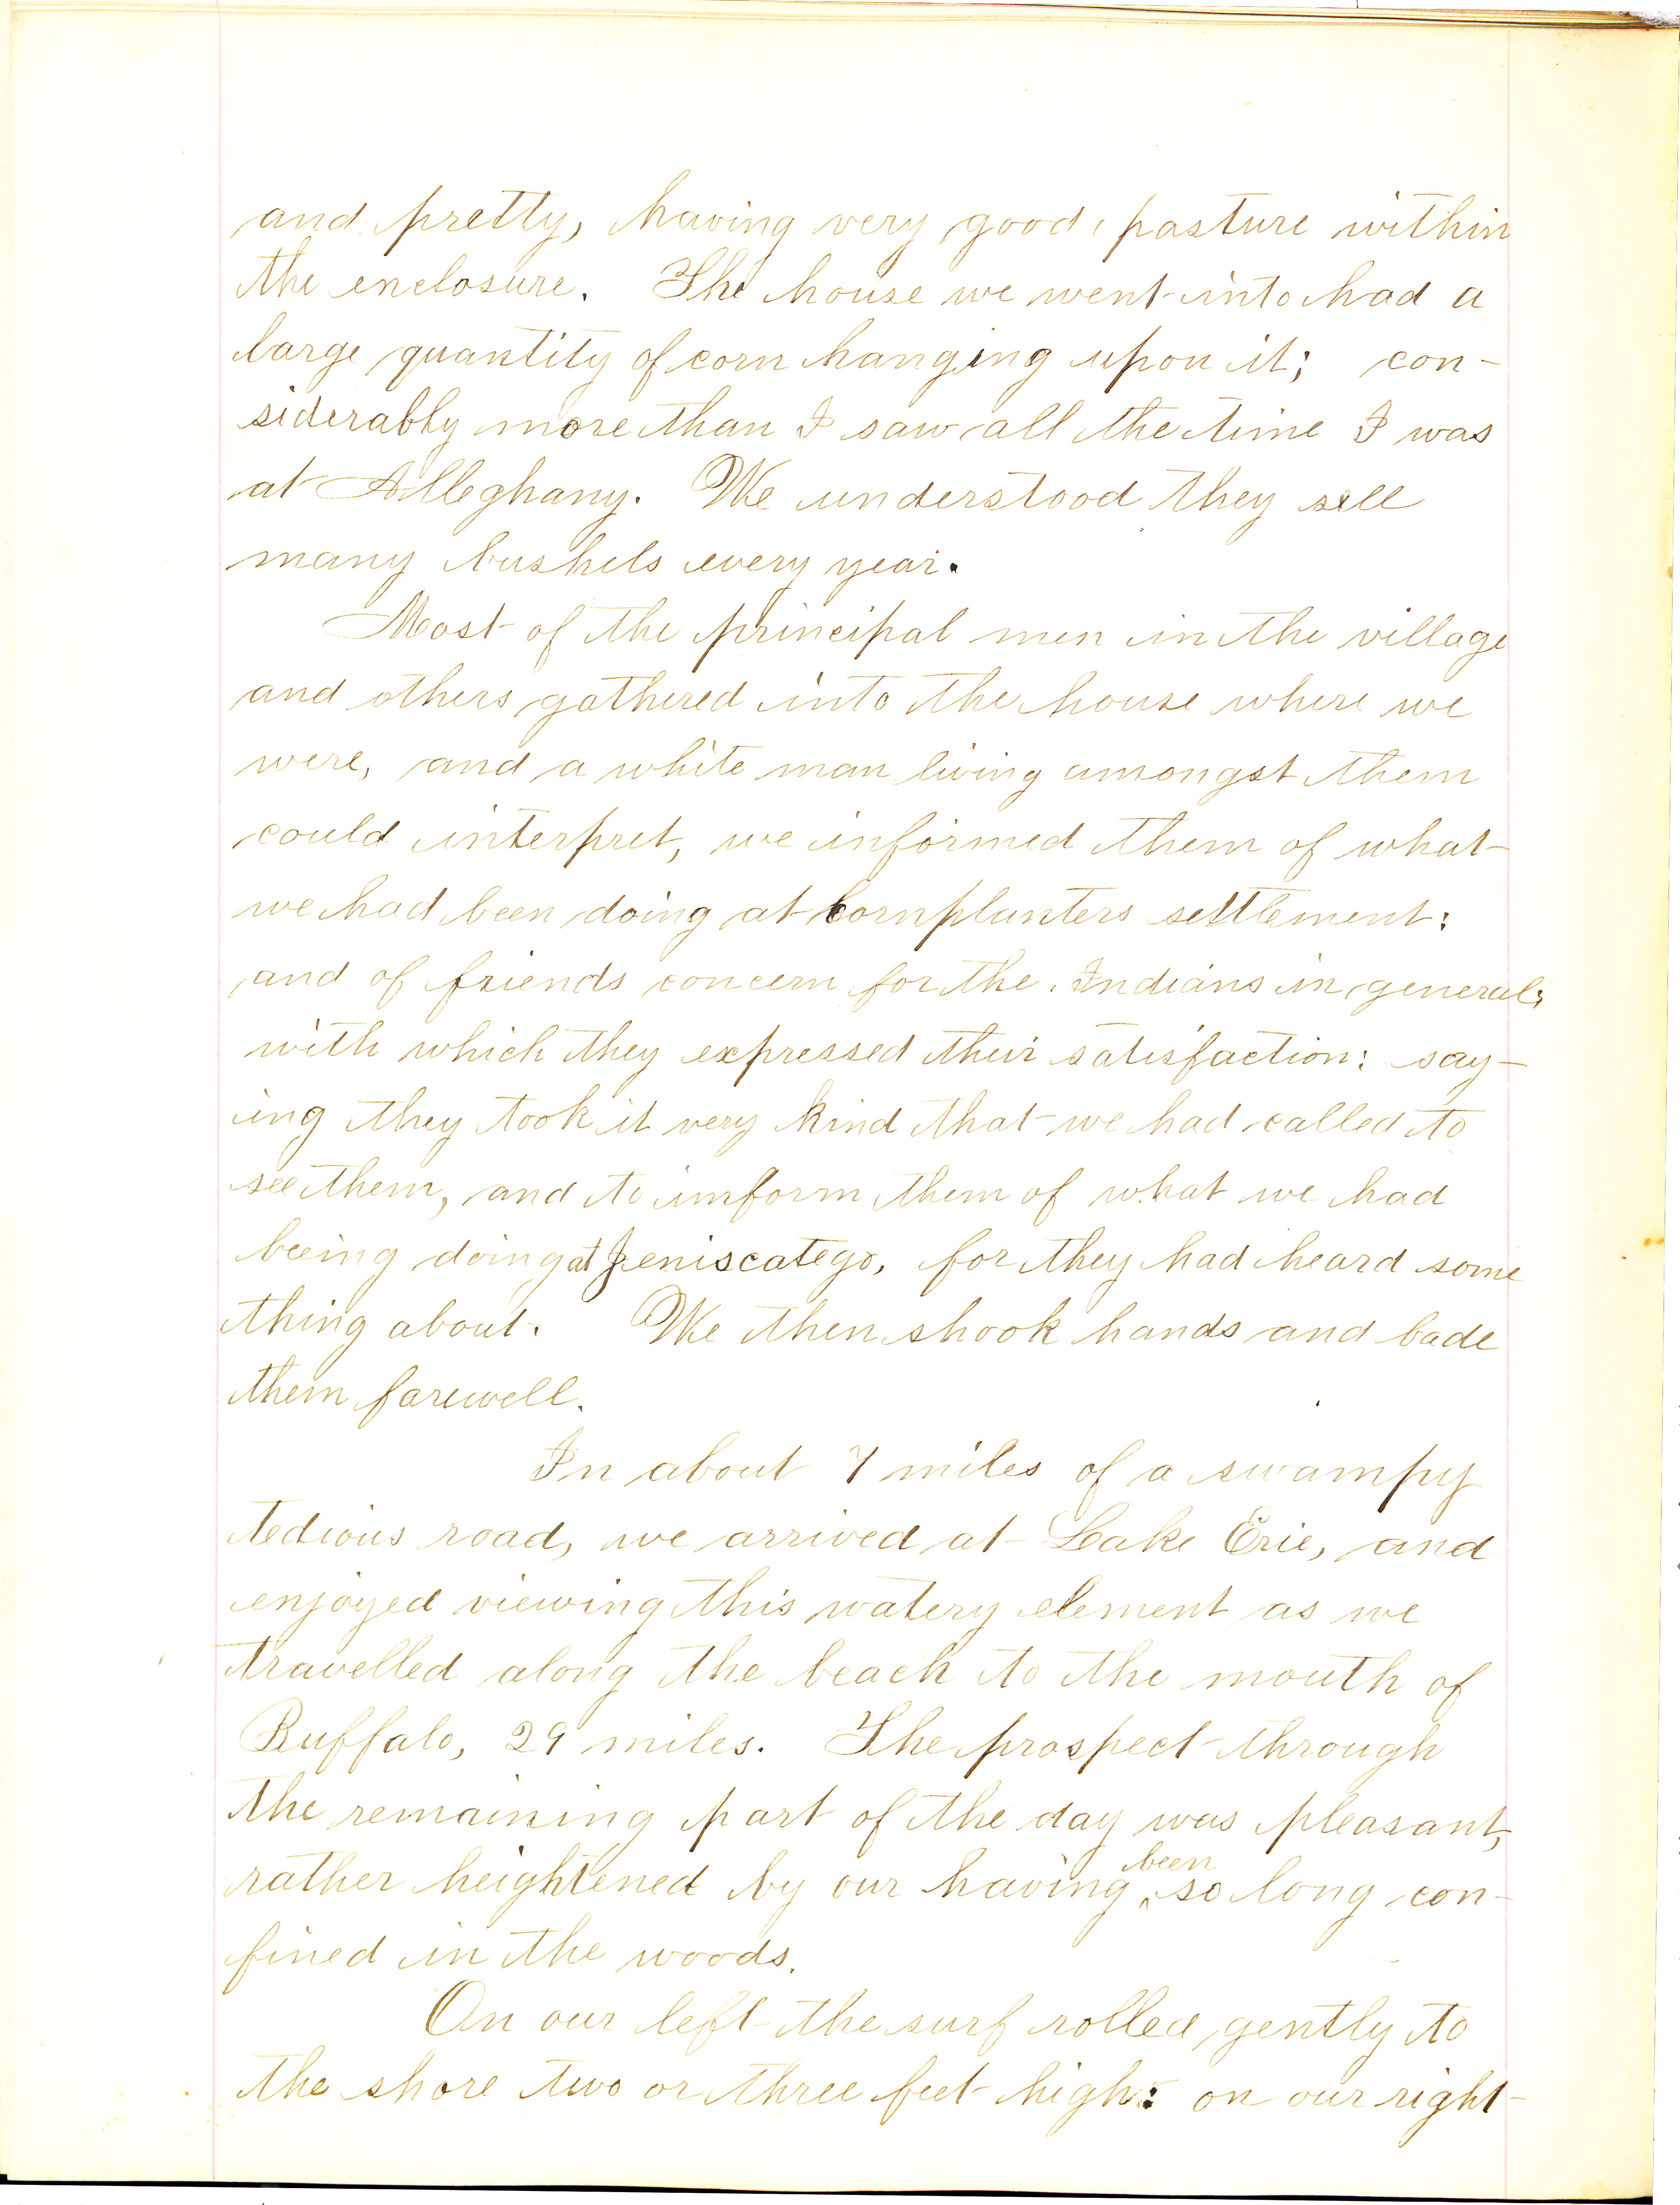 and pretty, having very good pasture within
the enclosure. The house we went into had a
large quantity of corn hanging upon it; con-
siderably more than I saw all the time I was
at Alleghany. We understood they sell
many bushels every year.
Most of the principal men in the village
and others gathered into the house where we
were, and a white man living amongst them
could interpret, we informed them of what
we had been doing at Cornplanters settlement:
and of friends concern for the Indians in general;
with which they expressed their satisfaction: say-
ing they took it very kind that we had called to
see them, and to imform them of what we had
being doing at Jeniscatego, for they had heard some
thing about. We then shook hands and bade
them farewell.
In about 7 miles of a swampy
tedious road, we arrived at Lake Erie, and
enjoyed viewing this watery element as we
travelled along the beach to the mouth of
Buffalo, 29 miles. The prospect through
the remaining part of the day was pleasant,
rather heightened by our having been so long con-
fined in the woods.
On our left the surf rolled gently to
the shore two or three feet high: on our right